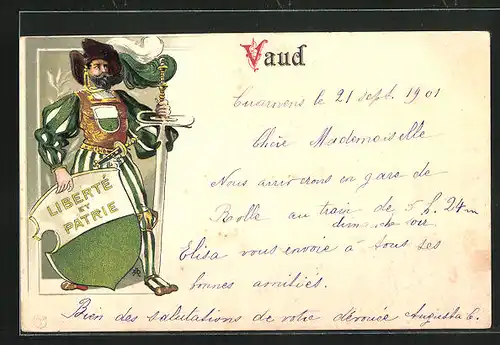 Vaud
LIBERTÉ
ET
PATRIE
Cuarnens le 21 sept. 1901
Chère Mademoiselle
Nous arriverons en gare de
Rolle au train de 5 h. 24m
dimanche soir
Elisa vous envoie à tous ses
bonnes amitiés.
Bien des salutations de votre dévouée Augusta